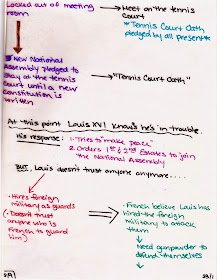 Locked out of meeting room
Meet on the tennis
Court
*Tennis Court Oath*
pledged by all present*
New National
Assembly pledged to
stay at the tennis
court until a new
constitution is
written
"Tennis Court Oath"
At this point Louis XVI knows he's in trouble.
His response: 1. Tries to make "peace"
2. Orders 1st & 2nd Estates to join
the National Assembly
BUT, Louis doesn't trust anyone anymore....
• Hires foreign
military as guards
(Doesn't trust
anyone who is
French to guard
him)
French believe Louis has
hired the foreign
military to attack
them
Need gunpowder to
defend themselves